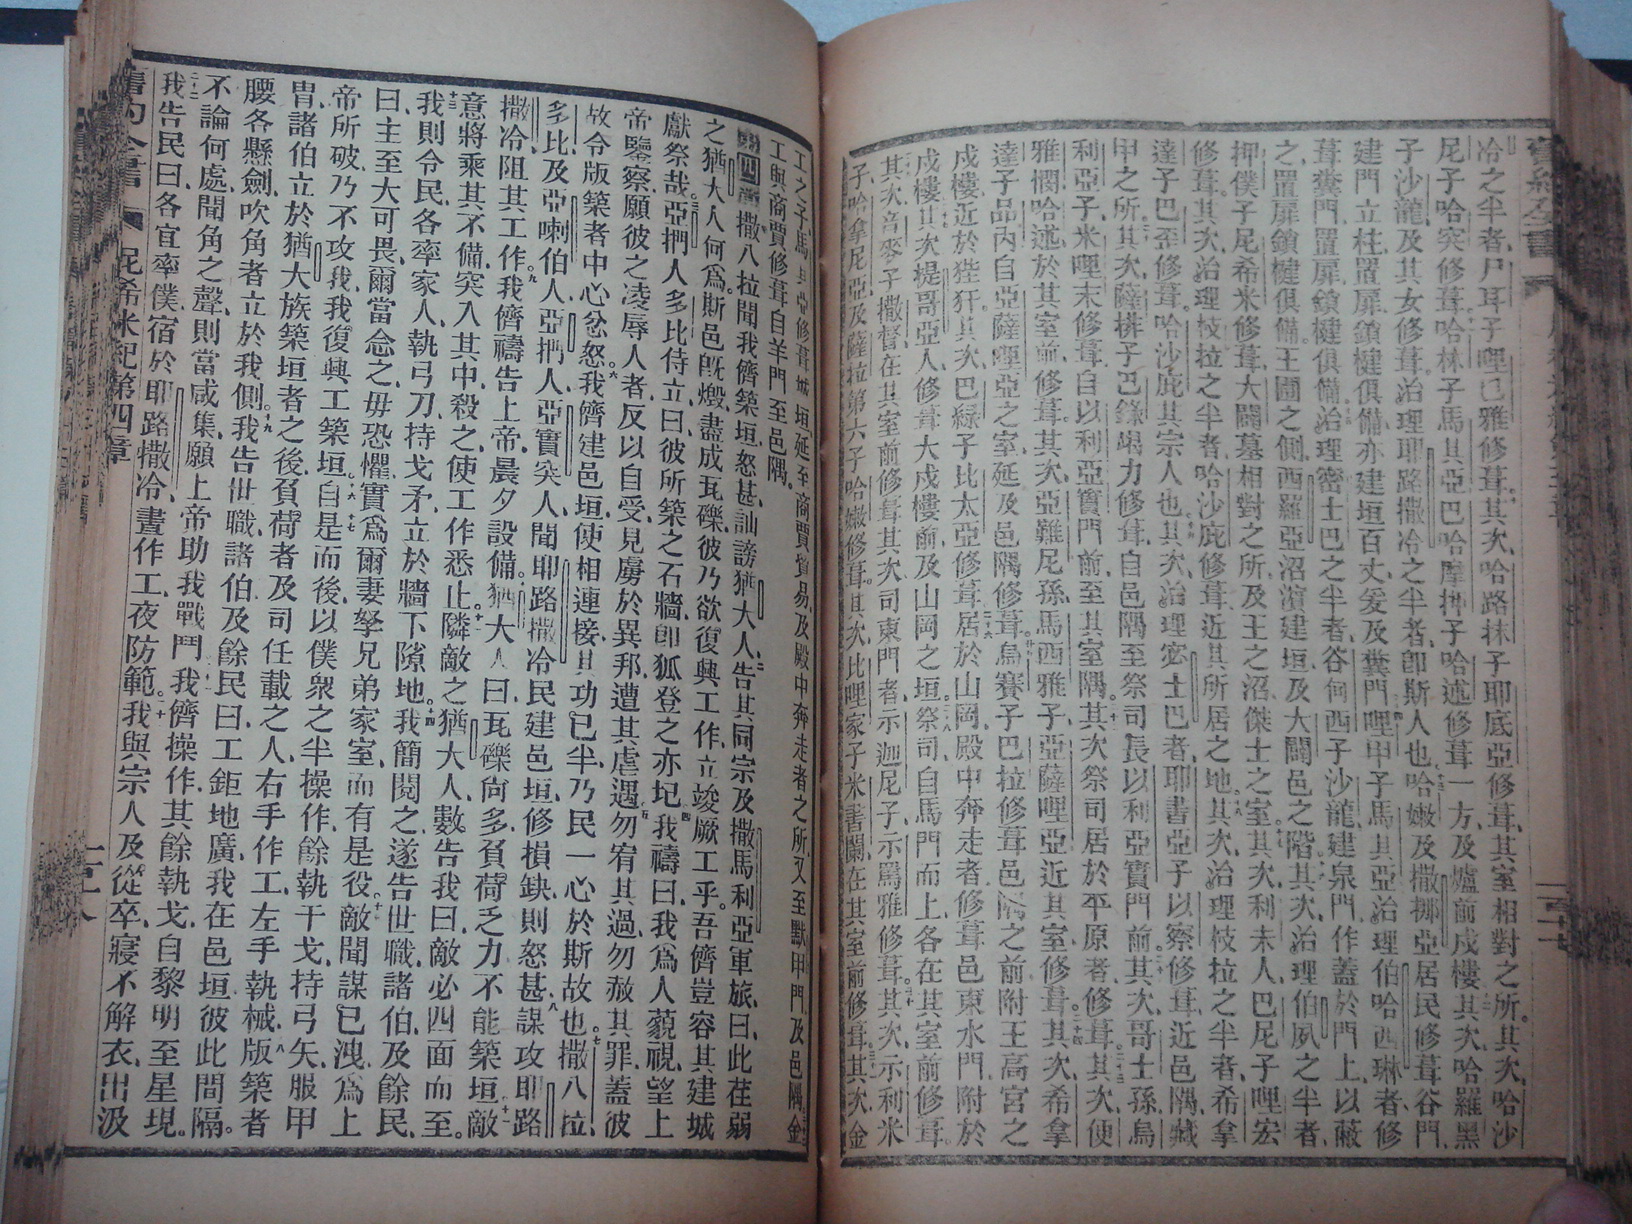 冷之半者、尸耳子哩巴雅修葺、其次、哈路抹子耶底亞修葺、其室相對之所、其次、哈沙
尼子哈突修葺、哈林子馬其亞、巴哈摩押子哈述修葺一方、及爐前戍樓、其次、哈羅黑
子沙龍、及其女修葺、治理耶路撒冷之半者、卽斯人也、哈嫩及撒挪亞居民、修葺谷門、
建門立柱、置扉鎖楗俱備、亦建垣百丈、爰及糞門、哩甲子馬其亞、治理伯哈西琳者、修
葺糞門、置扉鎖楗俱備、治理密士巴之半者、谷何西子沙龍、建泉門、作蓋於門上、以蔽
之、置扉鎖楗俱備、王囿之側、西羅亞沼濱建垣、及大闢邑之階、其次、治理伯夙之半者、
押僕子尼希米修葺、大闢墓相對之所、及王之沼、傑士之室、其次、利未人、巴尼子哩宏
修葺、其次、治理枝拉之半者、哈沙庇修葺、近其所居之地、其次、治理枝拉之半者、希拿
達子巴歪修葺、哈沙庇、其宗人也、其次、治理密士巴者、耶書亞子以察修葺、近邑隅、藏
甲之所、其次、薩拜子巴錄竭力修葺、自邑隅至祭司長以利亞實門前、其次、哥士孫、烏
利亞子、米哩末修葺、自以利亞實門前、至其室隅、其次、祭司居於平原者、修葺、其次、便
雅憫哈述、於其室前修葺、其次、亞難尼孫、馬西雅子、亞薩哩亞、近其室修葺、其次、希拿
達子品內、自亞薩哩亞之室、延及邑隅修葺、烏賽子巴拉修葺、邑隅之前、附王高宮之
戍樓、近於陛犴、其次、巴綠子比太亞修葺、居於山岡、殿中奔走者、修葺邑東水門、附於
戍樓、其次、提哥亞人、修葺大戍樓前、及山岡之垣、祭司自馬門而上、各在其室前修葺、
其次、音麥子撒督、在其室前修葺、其次、司東門者、示迦尼子、示罵雅修葺、其次、示利米
子哈拿尼亞、及薩拉第六子哈嫩修葺、其次、比哩家子米書闌、在其室前修葺、其次、金
工之子馬其亞修葺、城垣延至商賈貿易、及殿中奔走者之所、又至默甲門、及邑隅、金
工與商賈修葺、自羊門至邑隅。
第四章 撒八拉聞我儕築垣、怒甚、訕謗猶大人、二告其同宗、及撒馬利亞軍旅、曰、此荏弱
之猶大人何爲、斯邑旣燬、盡成瓦礫、彼乃欲復興工作、立竣厥工乎、吾儕豈容其建城
獻祭哉、亞捫人多比侍立、曰、彼所築之石牆、卽狐登之亦圮、四我禱曰、我爲人藐視、望上
帝鑒察、願彼之凌辱人者、反以自受、見虜於異邦、遭其虐遇、五勿宥其過、勿赦其罪、蓋彼
故令版築者中心忿怒、六我儕建邑垣、使相連接、其功已半、乃民一心於斯故也、七撒八拉、
多比、及亞喇伯人、亞捫人、亞實突人、聞耶路撒冷民、建邑垣、修損缺、則怒甚、八謀攻耶路
撒冷、阻其工作、九我儕禱告上帝、晨夕設備、十猶大人曰、瓦礫尙多、負荷乏力、不能築垣、十一敵
意將乘其不備、突入其中殺之、使工作悉止、十二隣敵之猶大人、數告我曰、敵必四面而至。
十三我則令民、各率家人、執弓刀、持戈矛、立於牆下隙地。十四我簡閱之、遂告世職諸伯、及餘民、
曰、主至大可畏、爾當念之、毋恐懼、實爲爾妻孥兄弟家室而有是役、十五敵聞謀已洩、爲上
帝所破、乃不攻我、我復興工築垣、十六自是而後、以僕衆之半操作、餘執干戈、持弓矢、服甲
胄、諸伯立於猶大族築垣者之後、十七負荷者、及司任載之人、右手作工、左手執械、十八版築者
腰各懸劍、吹角者立於我側、十九我告世職諸伯、及餘民曰、工鉅地廣、我在邑垣、彼此間隔。
二十不論何處、聞角之聲、則當咸集、願上帝助我戰鬥、二一我儕操作、其餘執戈、自黎明至星現。
二二我告民曰、各宜率僕宿於耶路撒冷、晝作工、夜防範、二三我與宗人及從卒、寢不解衣、出汲
舊約全書 尼希米紀第四章